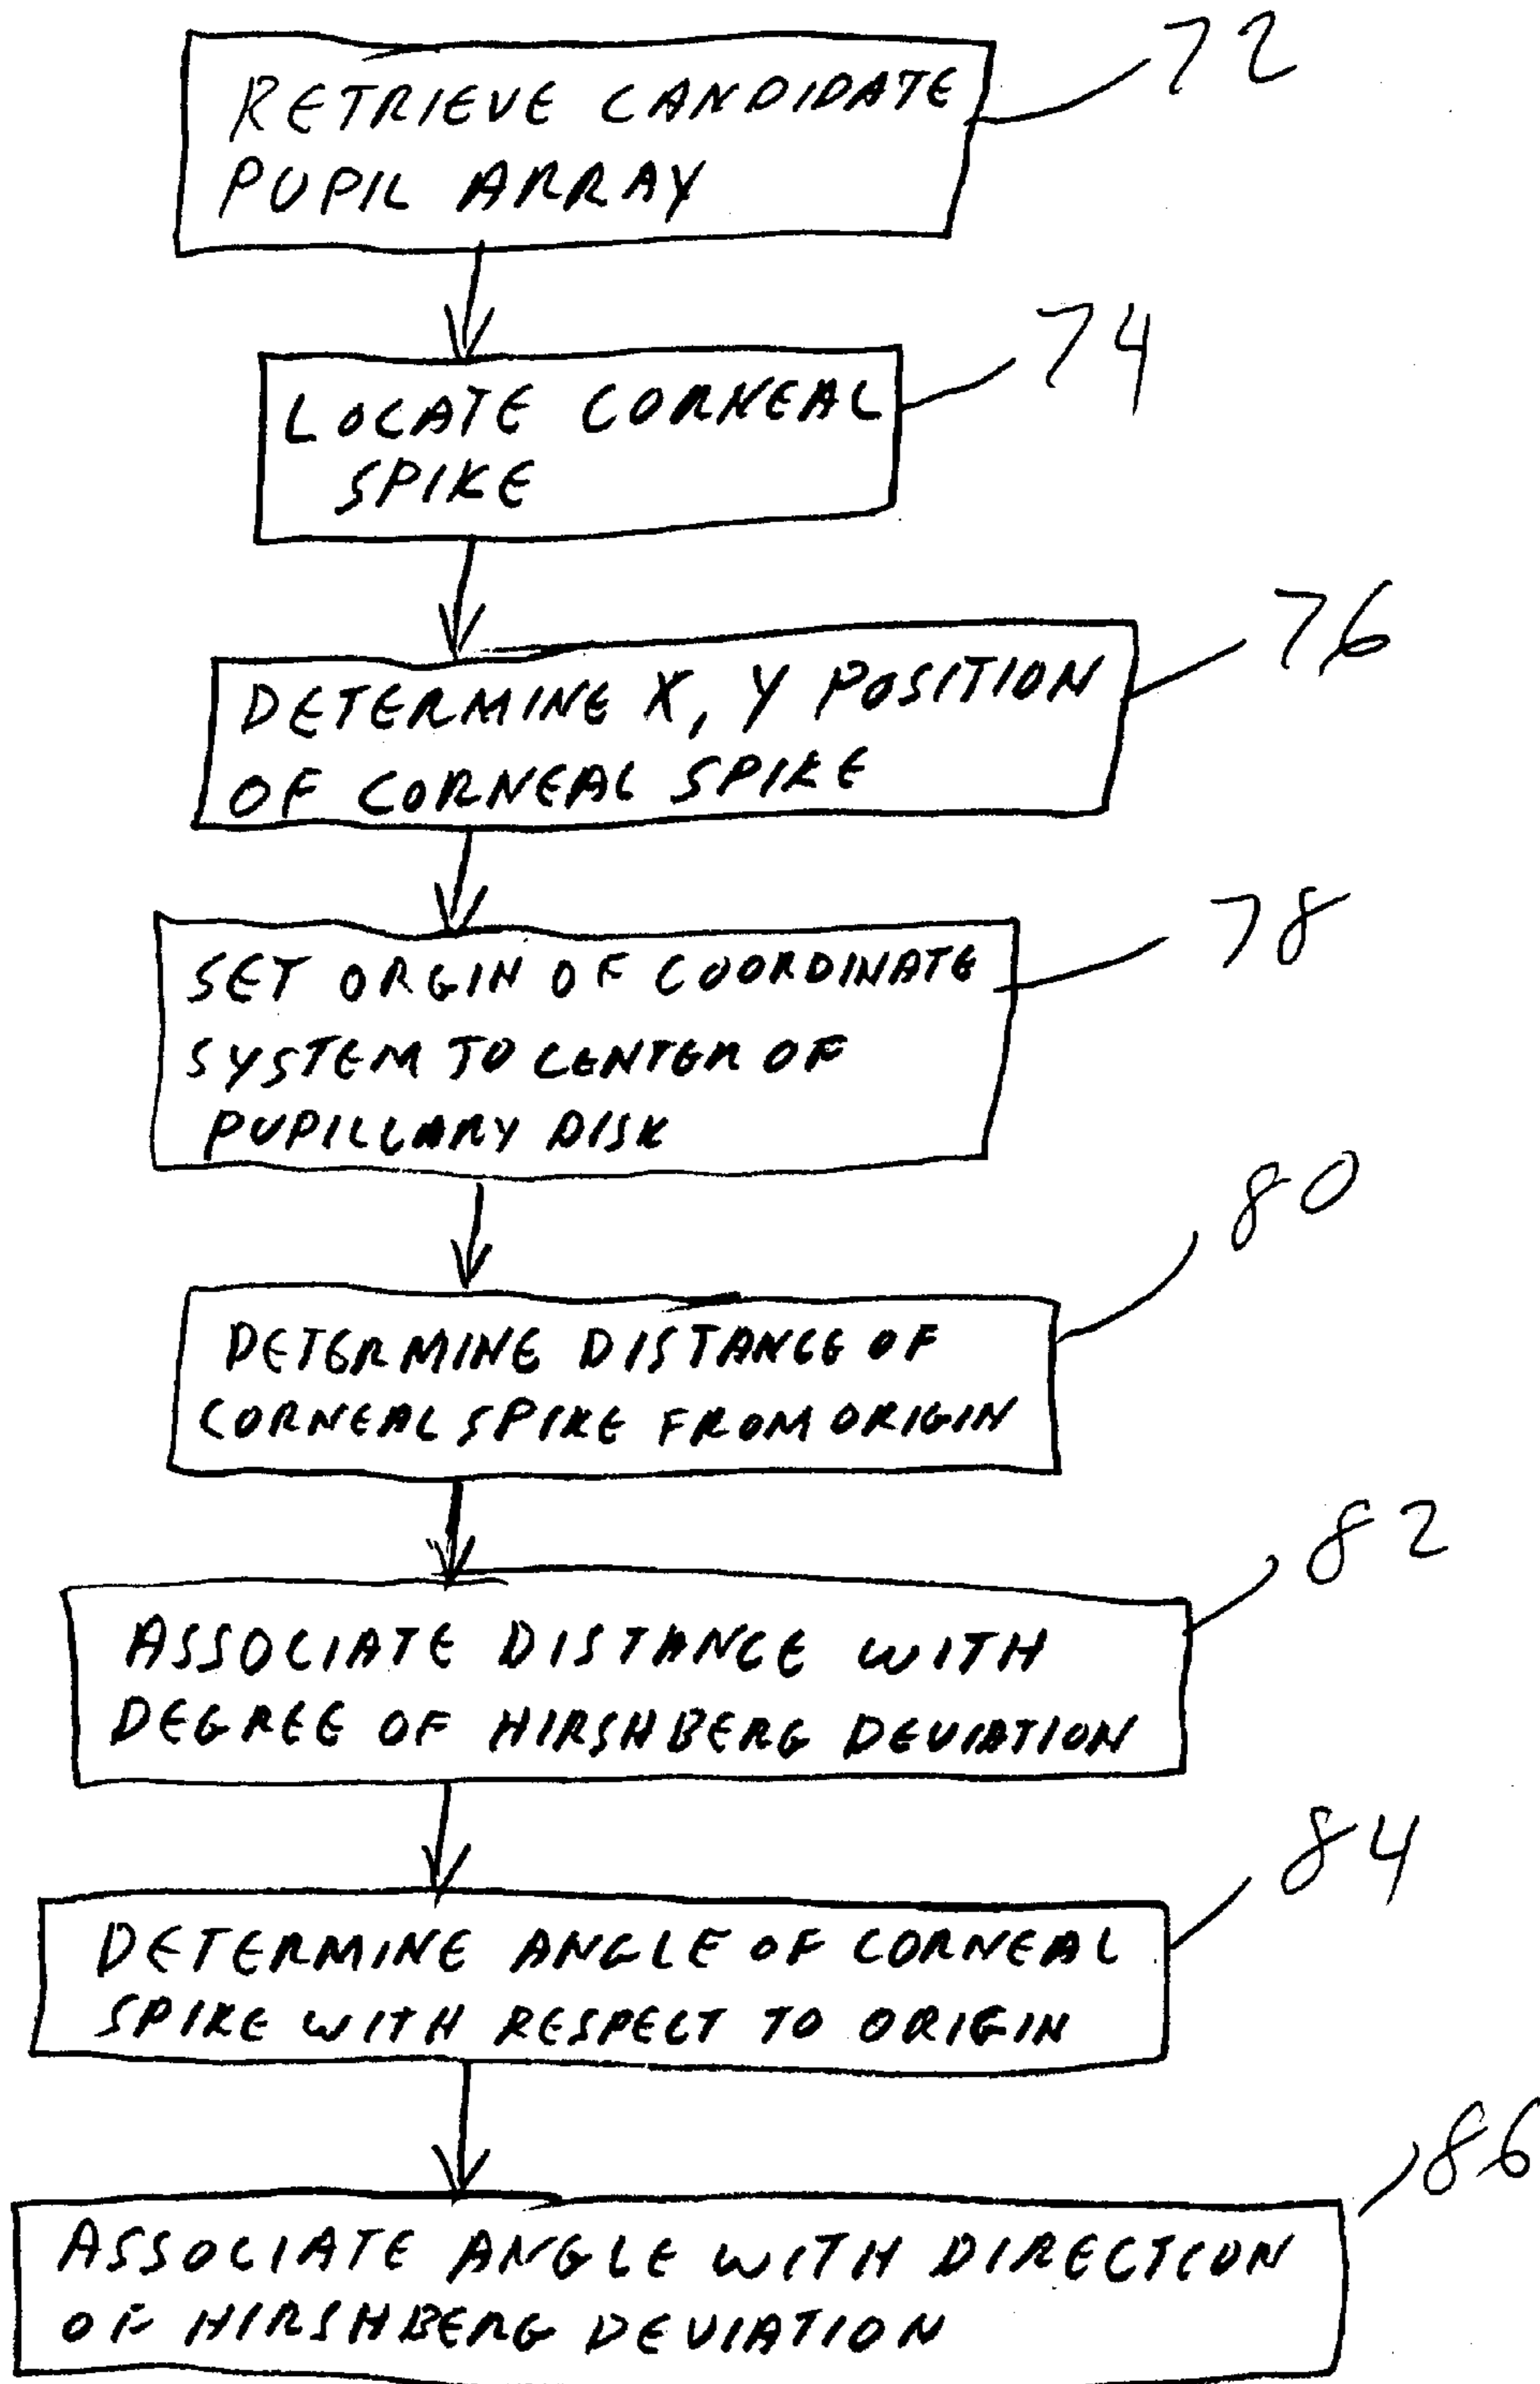 RETRIEVE CANDIDATE
PUPIL ARRAY
72
LOCATE CORNEAL
SPIKE
74
DETERMINE X, Y POSITION
OF CORNEAL SPIKE
76
SET ORGIN OF COORDINATE
SYSTEM TO CENTER OF
PUPILLARY DISK
78
DETERMINE DISTANCE OF
CORNEAL SPIKE FROM ORIGIN
80
ASSOCIATE DISTANCE WITH
DEGREE OF HIRSHBERG DEVIATION
82
DETERMINE ANGLE OF CORNEAL
SPIKE WITH RESPECT TO ORIGIN
84
ASSOCIATE ANGLE WITH DIRECTION
OF HIRSHBERG DEVIATION
86